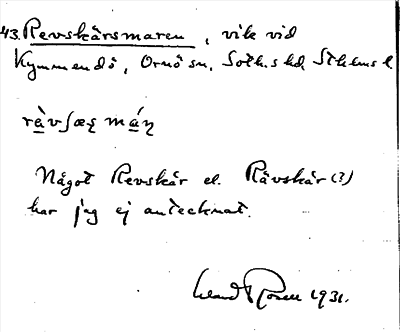 43. Revskärsmaren, vik vid
Kymmendö, Ornö sn, Soth.s hd, Sthlms l.
ràvʃæʂ máŋ
Något Revskär el. Rävskär (?)
har jag ej antecknat.
Rosell 1931.